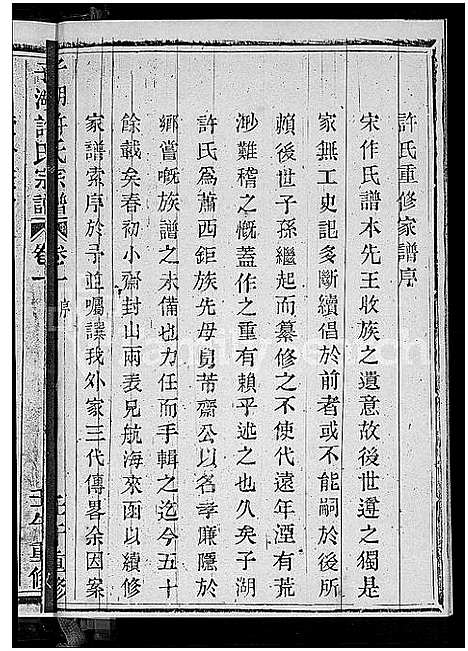 許氏重修家譜序
宋作氏譜本先王收族之遺意故後世遵之獨是
家無工史記多斷續倡於前者或不能嗣於後所
賴後世子孫繼起而纂修之不使代遠年湮有荒
渺難稽之慨蓋作之重有賴乎述之也久矣子湖
許氏為蕭西鉅族先母舅芾齋公以名孝廉隱於
鄉嘗慨族譜之未備也力任而手輯之迄今五十
餘載矣春初小齋封山兩表兄航海來函以續修
家譜索序於予並囑譔我外家三代傳畧余因案
子湖許氏宗譜 卷一 序 壬午重修
子湖許氏宗譜 卷一 壬午重修